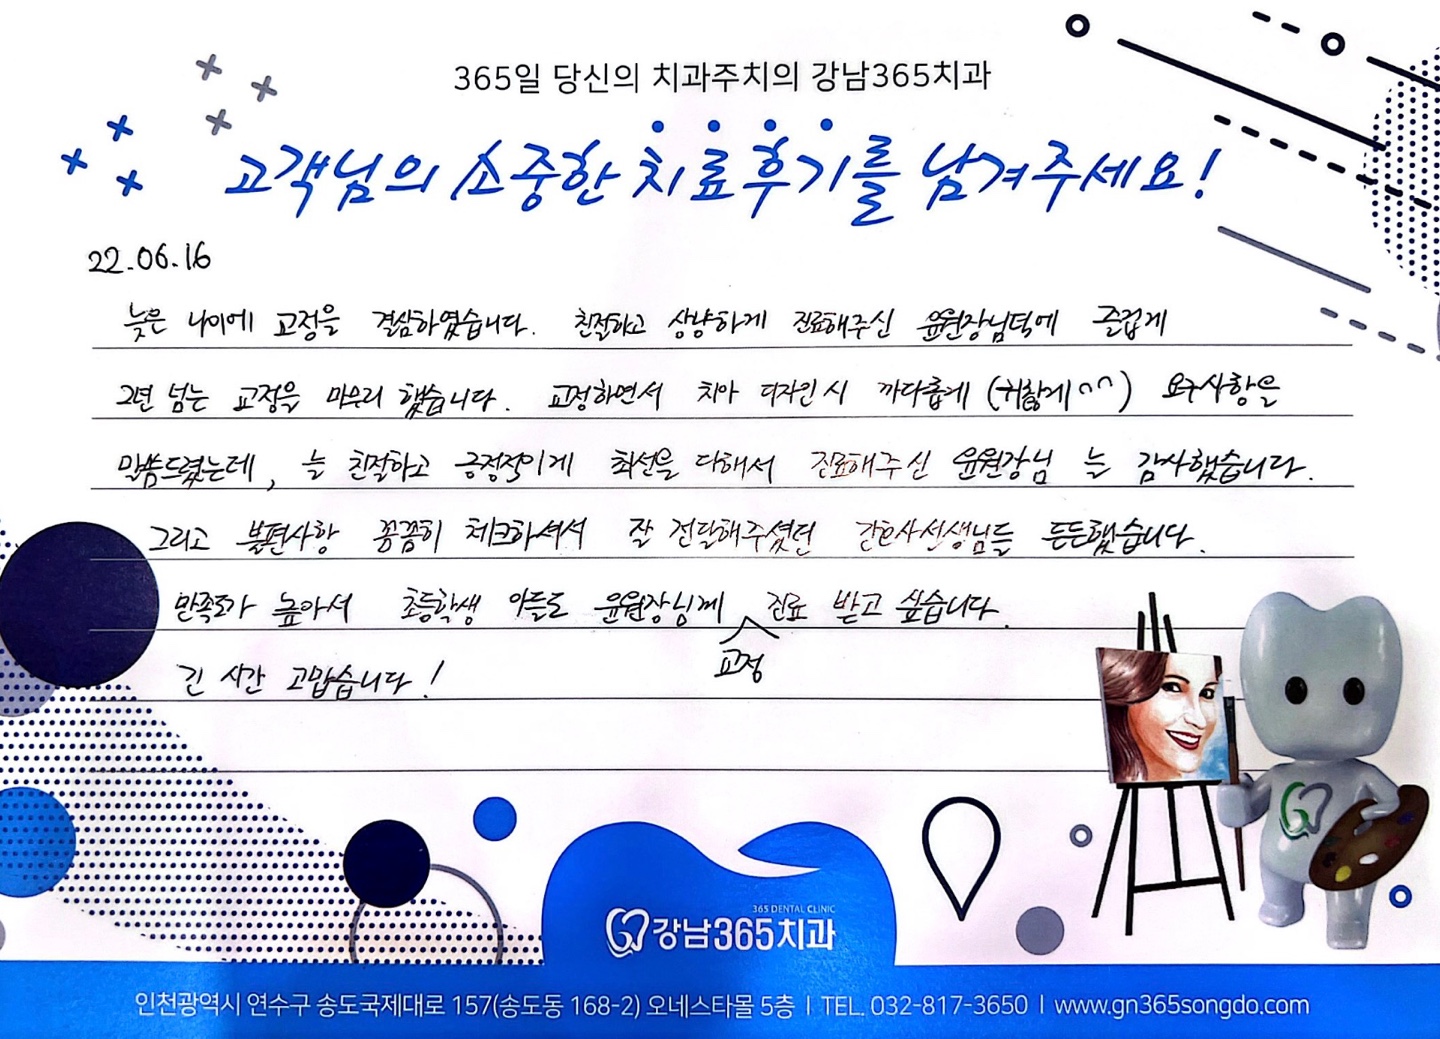 365일 당신의 치과주치의 강남365치과
고객님의 소중한 치료후기를 남겨주세요!
22.06.16
늦은 나이에 교정을 결심하였습니다. 친절하고 상냥하게 진료해주신 윤원장님덕에 즐겁게
2년 넘는 교정을 마무리 했습니다. 교정하면서 치아 디자인 시 까다롭게 (귀찮게^^) 요구사항을
말씀드렸는데, 늘 친절하고 긍정적이게 최선을 다해서 진료해주신 윤원장님 는 감사했습니다.
그리고 불편사항 꼼꼼히 체크하셔서 잘 전달해주셨던 간호사선생님들 든든했습니다.
만족도가 높아서 초등학생 아들도 윤원장님께 진료 받고 싶습니다.
교정
긴 시간 고맙습니다!
365 DENTAL CLINIC
강남365치과
인천광역시 연수구 송도국제대로 157(송도동 168-2) 오네스타몰 5층 | TEL. 032-817-3650 | www.gn365songdo.com